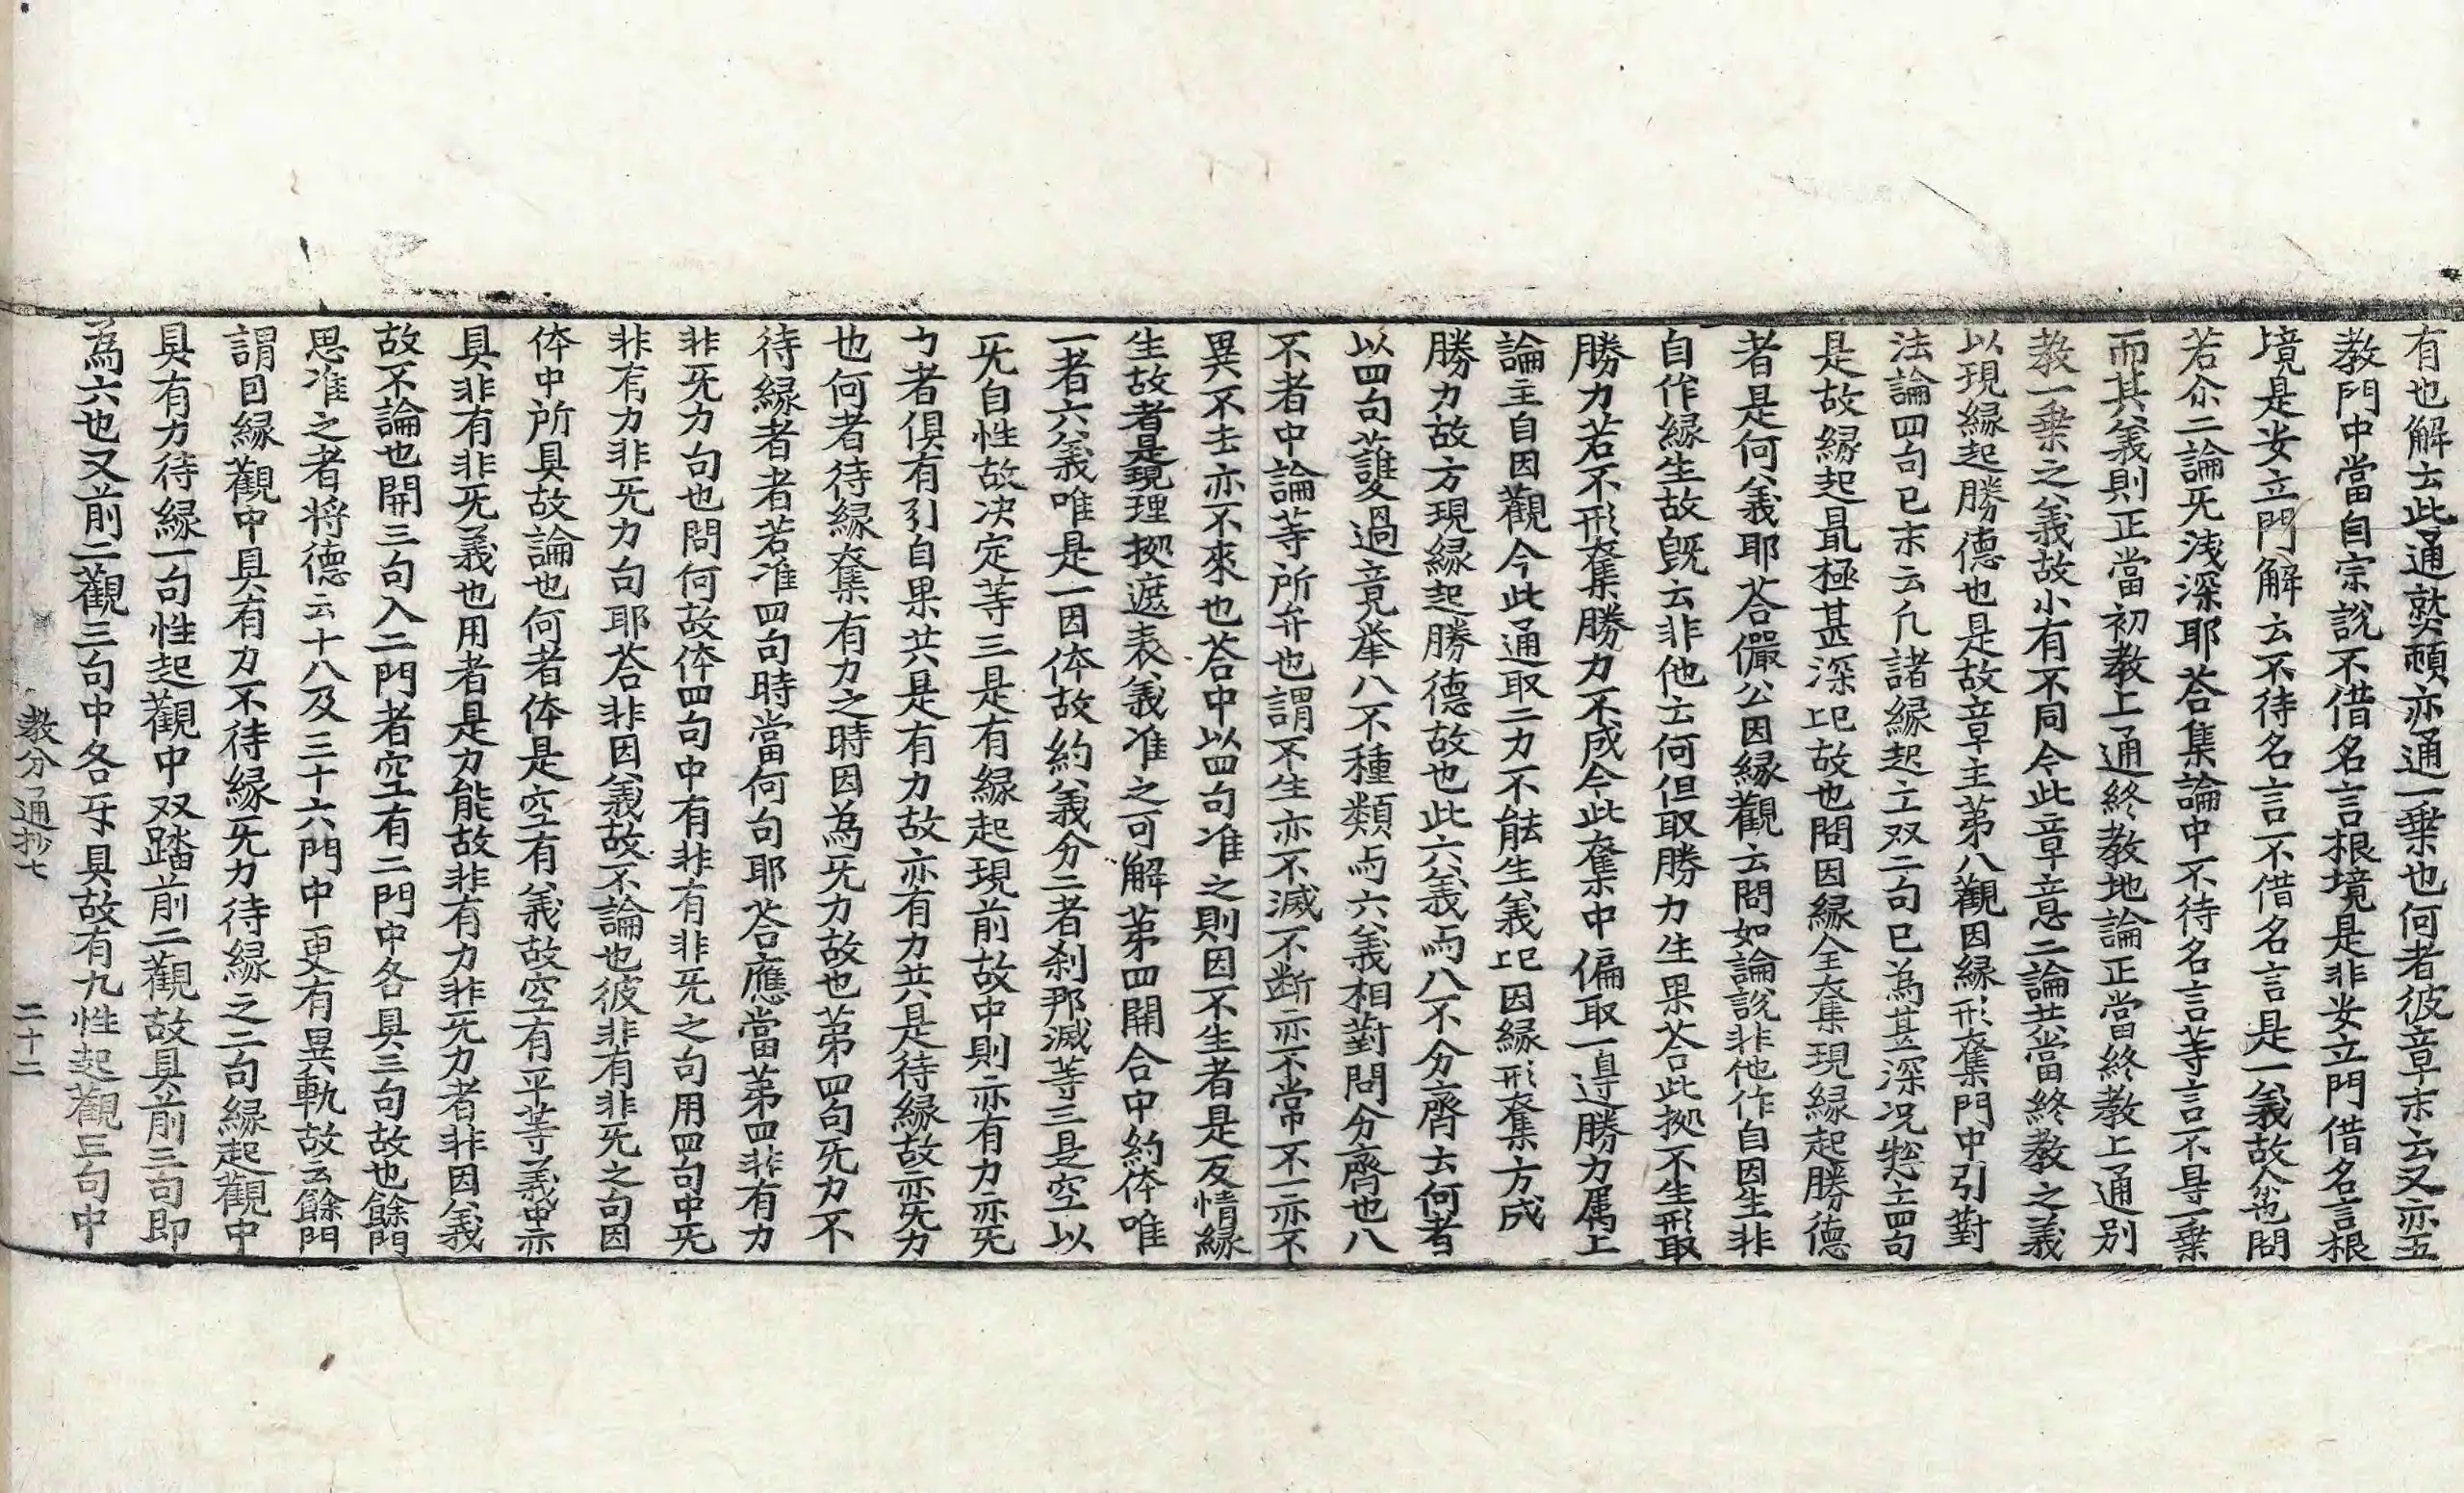 有也解云此通熟頓亦通一乗也何者彼章末云又亦五
教門中當自宗說不借名言根境是非安立門借名言根
境是安立門解云不待名言不借名言是一義故尒也問
若尒二論旡浅深耶荅集論中不待名言等言不㝵一乗
而其義則正當初教上通終教地論正當終教上通別
教一乗之義故小有不同今此章意二論共當終教之義
以現縁起勝德也是故章主第八觀因縁形奪門中引對
法論四句已末云凡諸縁起立双二句已為甚深况惣亡四句
是故縁起㝡極甚深已故也問因縁全奪現縁起勝德
者是何義耶荅儼公因縁觀云問如論說非他作自因生非
自作縁生故旣云非他云何但取勝力生果荅此㨿不生形取
勝力若不形奪勝力不成今此奪中偏取一邊勝力属上
論主自因觀今此通取二力不能生義已因縁形奪方成
勝力故方現縁起勝德故也此六義与八不分齊云何者
以四句護過竟举八不種類与六義相對問分齊也八
不者中論等所弁也謂不生亦不滅不断亦不常不一亦不
異不去亦不來也荅中以四句准之則因不生者是反情縁
生故者是現理㨿遮表義准之可解第四開合中約体唯
一者六義唯是一因体故約義分二者刹那滅等三是空以
旡自性故决定等三是有縁起現前故中則亦有力亦旡
力者俱有引自果共是有力故亦有力共是待縁故亦旡力
也何者待縁奪有力之時因為旡力故也第四句旡力不
待縁者者若准四句時當何句耶荅應當第四非有力
非旡力句也問何故体四句中有非有非旡之句用四句中旡
非有力非旡力句耶荅非因義故不論也彼非有非旡之句因
体中所具故論也何者体是空有義故空有平等義中亦
具非有非旡義也用者是力能故非有力非旡力者非因義
故不論也開三句入二門者空有二門中各具三句故也餘門
思准之者將德云十八及三十六門中更有異軌故云餘門
謂因縁觀中具有力不待縁旡力待縁之二句縁起觀中
具有力待縁一句性起觀中双踏前二觀故具前三句即
為六也又前二觀三句中各牙具故有九性起觀三句中
教分通抄七　二十二